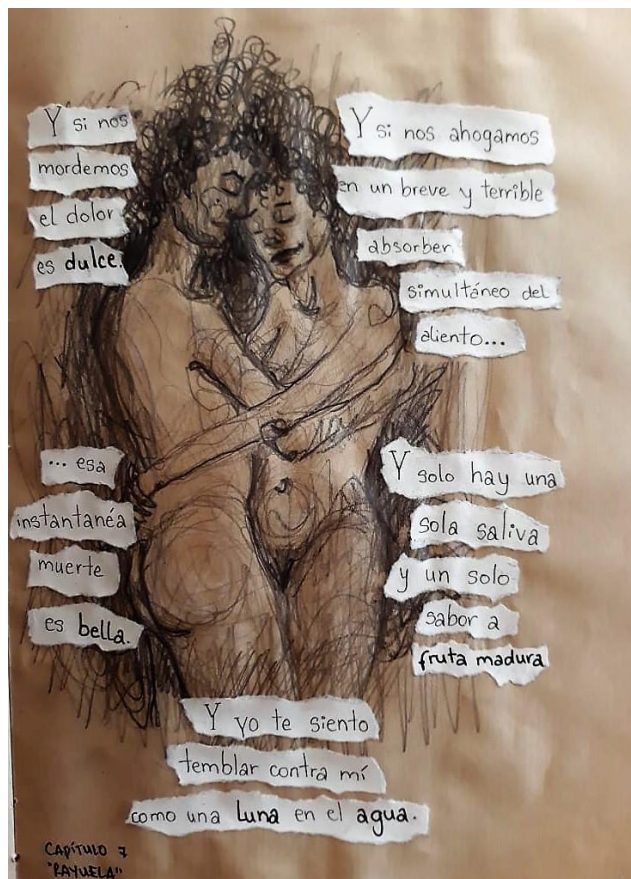 Y si nos
mordemos
el dolor
es dulce.
Y si nos ahogamos
en un breve y terrible
absorber
simultáneo del
aliento...
... esa
instantanéa
muerte
es bella.
Y solo hay una
sola saliva
y un solo
sabor a
fruta madura
Y yo te siento
temblar contra mí
como una luna en el agua.
CAPÍTULO 7
"RAYUELA"